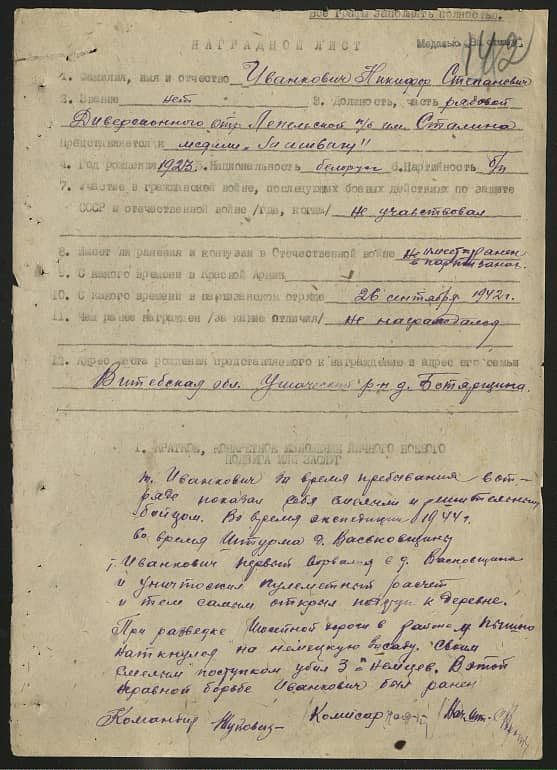 Все графы заполнять полностью.
НАГРАДНОЙ ЛИСТ
Медалью За отваг.
142
1. Фамилия, имя и отчество Иванкович Никифор Степанович
2. Звание нет 3. Должность, часть рядовой
Диверсионного отр. Лепельской п/б им. Сталина
представляется к медали
4. Год рождения 1923 5. Национальность белорус 6. Партийность б/п
7. Участие в гражданской войне, последующих боевых действиях по защите
СССР и отечественной войне /где, когда/ не учавствовал
8. Имеет ли ранения и контузии в Отечественной войне ранен
в партизанах.
9. С какого времени в Красной Армии
10. С какого времени в партизанском отряде 26 сентября 1942 г.
11. Чем ранее награжден /за какие отличия/ не награждался
12. Адрес места рождения представляемого к награждению и адрес его семьи
Витебская обл. Ушачский р-н д.
1. КРАТКОЕ, КОНКРЕТНОЕ ИЗЛОЖЕНИЕ ЛИЧНОГО БОЕВОГО
ПОДВИГА ИЛИ ЗАСЛУГ
т. Иванкович за время пребывания в отр-
ряде показал себя смелым и решительным
бойцом. Во время экспедиции 1944 г.
во время штурма д. Васьковщину
т. Иванкович первый ворвался в д. Васковщина
и уничтожил пулеметный расчет
и тем самым открыл подход к деревне.
При разведке шосейной дороги в районе м. Пышно
наткнулся на немецкую засаду. Своим
смелым поступком убил 3х немцев. В этой
неравной борьбе Иванкович был ранен
Командир Комисар Нач. шт.